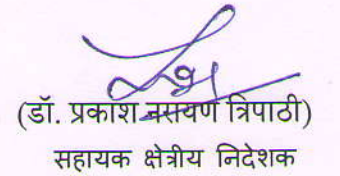 (डॉ. प्रकाश नरायण त्रिपाठी)
सहायक क्षेत्रीय निदेशक